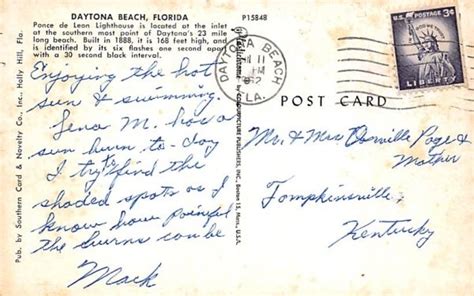 DAYTONA BEACH, FLORIDA
P15848
Ponce de Leon Lighthouse is located at the inlet
at the southern most point of Daytona's 23 mile
long beach. Built in 1888, it is 168 feet high, and
is identified by its six flashes one second apart
with a 30 second black interval.
Enjoying the hot
sun & swimming.
Lena M. has a
sun burn to-day
I try to find the
shaded spots as I
know how painful
the burns can be
Mack
Pub. by Southern Card & Novelty Co., Inc. Holly Hill, Fla.
DAYTONA BEACH
11
PM
FLA.
U.S. POSTAGE 3¢
LIBERTY
POST CARD
Mr. & Mrs. Orville Page &
Mother
Tompkinsville,
Kentucky